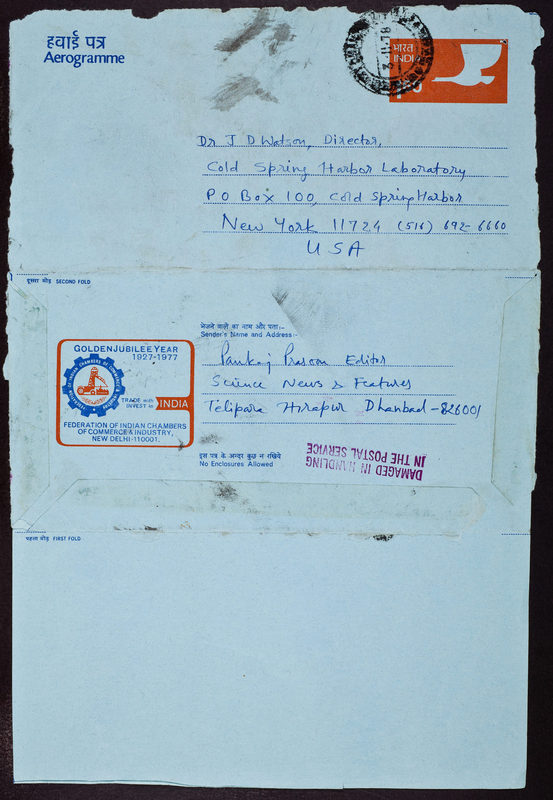 हवाई पत्र
Aerogramme
3-11-78
भारत
INDIA
Dr J D Watson, Director,
Cold Spring Harbor Laboratory
P O Box 100, Cold Spring Harbor
New York 11724 (516) 692-6660
U S A
दूसरा मोड़ SECOND FOLD
भेजने वाले का नाम और पता:-
Sender's Name and Address:-
Pankaj Prasoon Editor
Science News & Features
Telipara Hirapur Dhanbad-826001
GOLDEN JUBILEE YEAR
1927-1977
FEDERATION OF INDIAN CHAMBERS OF COMMERCE & INDUSTRY
TRADE with
INVEST in INDIA
FEDERATION OF INDIAN CHAMBERS
OF COMMERCE & INDUSTRY,
NEW DELHI-110001.
इस पत्र के अन्दर कुछ न रखिये
No Enclosures Allowed
DAMAGED IN HANDLING
IN THE POSTAL SERVICE
पहला मोड़ FIRST FOLD